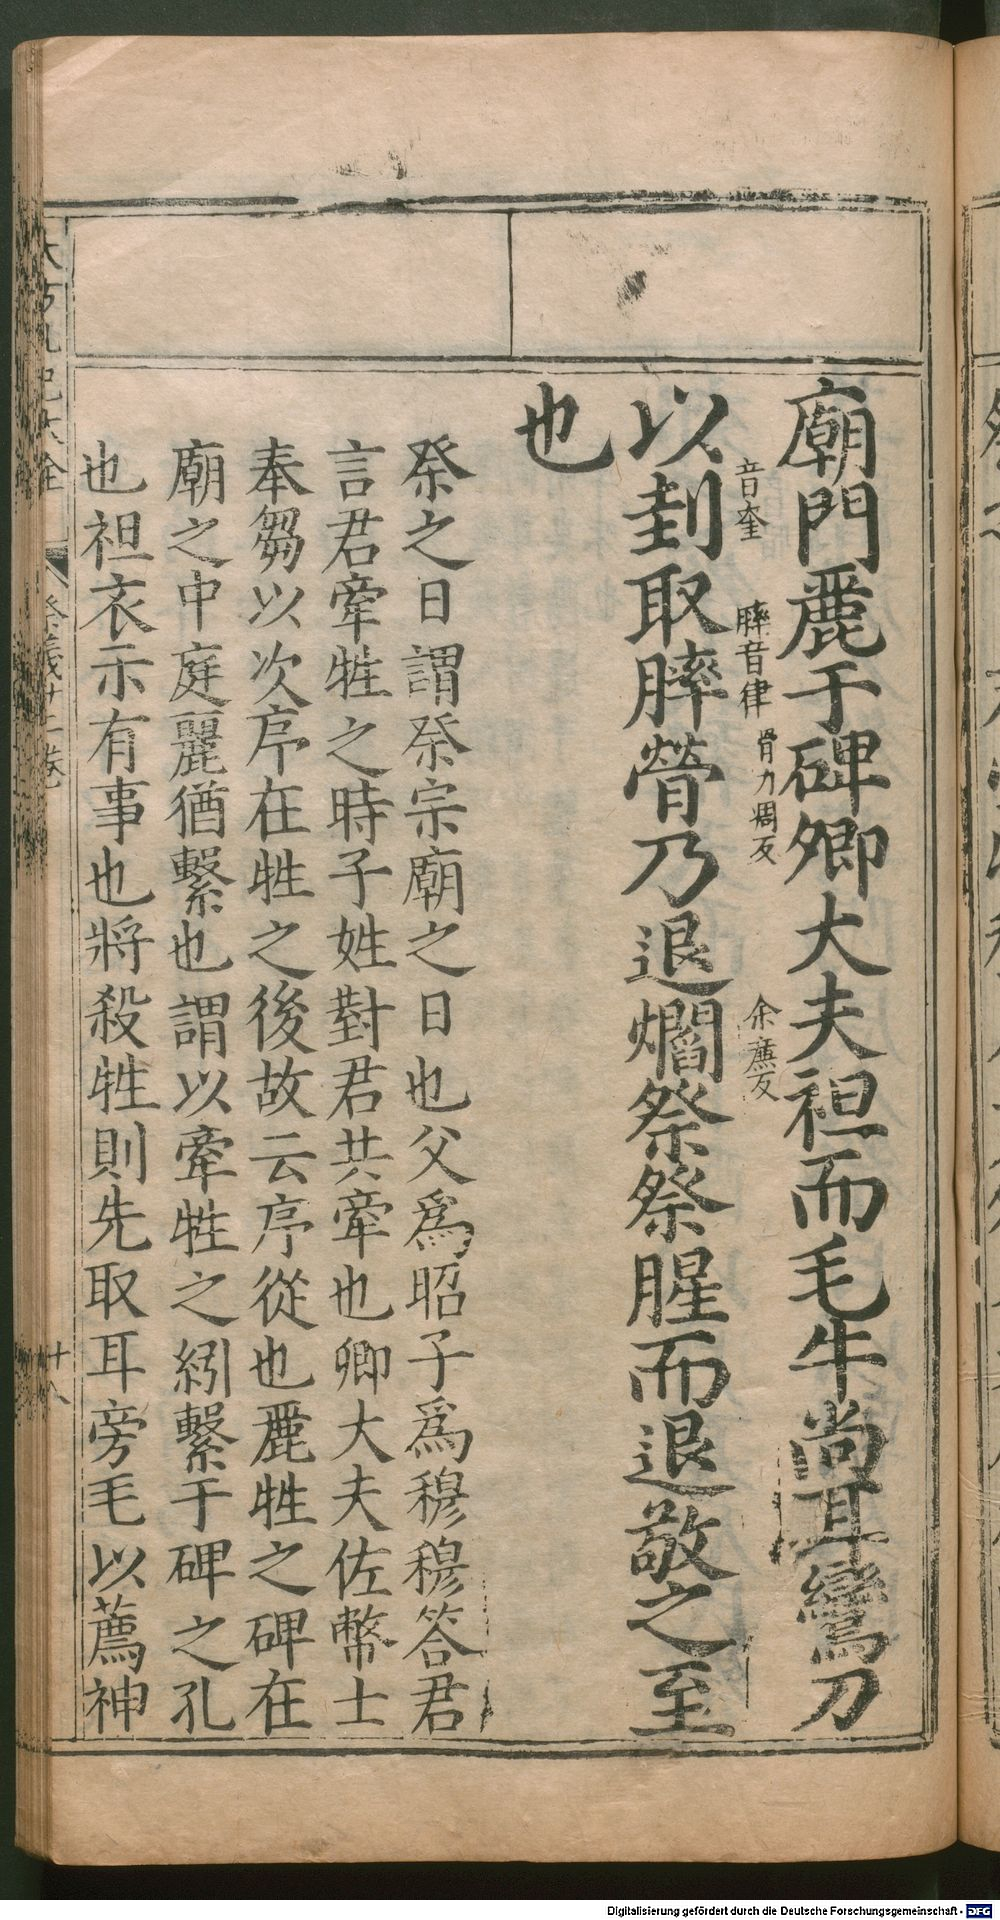 廟門麗于碑卿大夫袒而毛牛尚耳鸞刀
以刲取膟膋乃退爓祭祭腥而退敬之至
音奎
膟音律
膋力凋反
余廉反
也
祭之日謂祭宗廟之日也父爲昭子爲穆穆答君
言君牽牲之時子姓對君共牽也卿大夫佐幣士
奉芻以次序在牲之後故云序從也麗牲之碑在
廟之中庭麗猶繫也謂以牽牲之紖繫于碑之孔
也袒衣示有事也將殺牲則先取耳旁毛以薦神
祭義廿一卷
十八
Digitalisierung gefördert durch die Deutsche Forschungsgemeinschaft - DFG